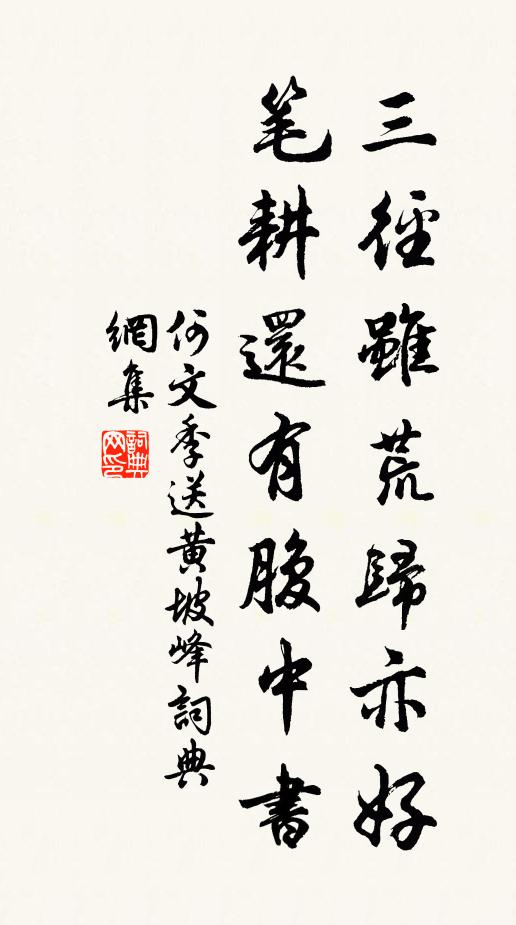 三徑雖荒歸亦好
笔耕還有腹中書
何文季送黃坡峰詞典
網集
詞典
网印